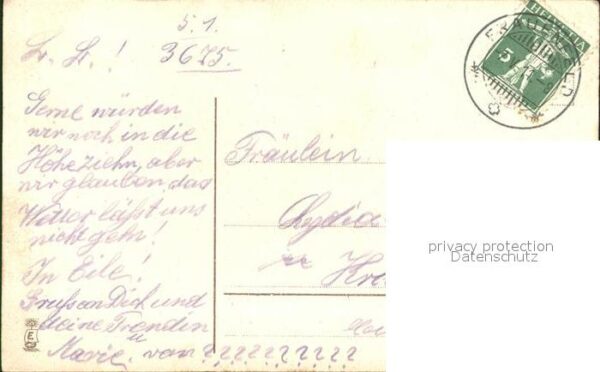 5.1.
L. L. !
3675.
HELVETIA
FRAUENFELD
5
Gerne würden
wir noch in die
Höhe ziehn, aber
wir glauben das
Wetter läßt uns
nicht gehn!
In Eile!
Grüße an Dich und
deine Freundin
Marie. von ? ? ? ? ? ? ? ? ? ?
u
Fräulein
Lydia
Kre
privacy protection
Datenschutz
E